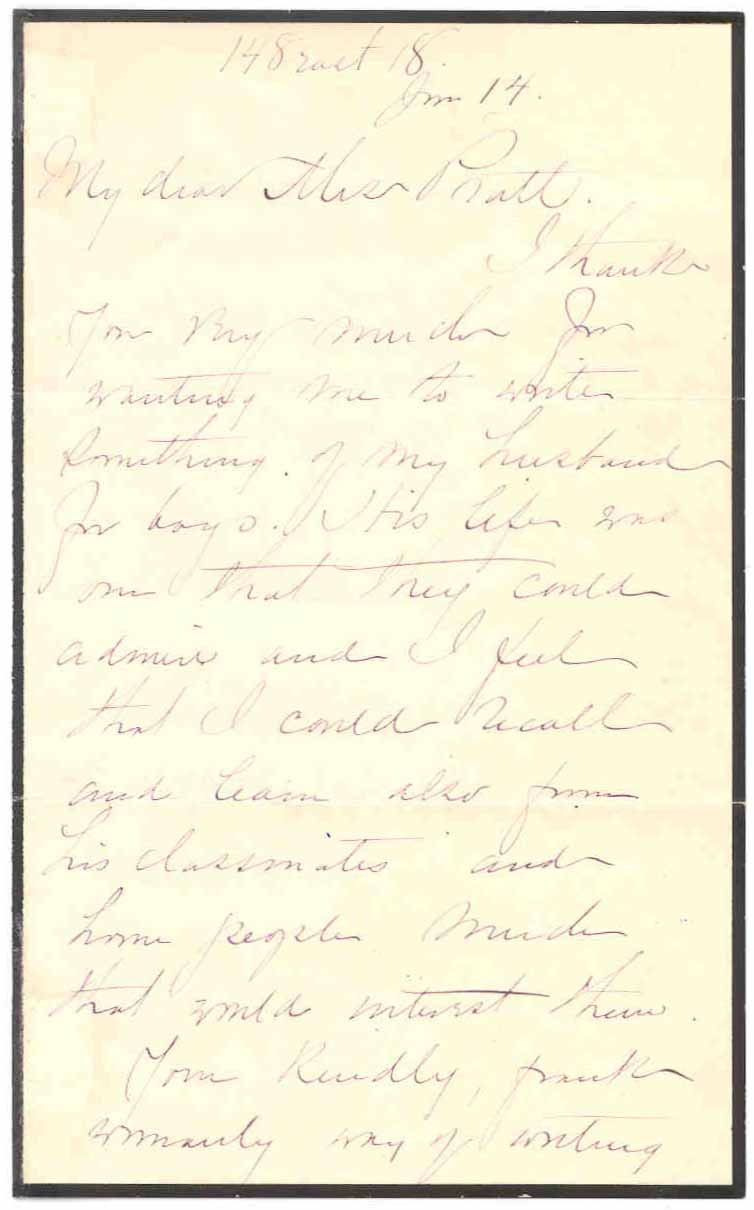 148 East 18.
Jan 14.
My dear Miss Pratt.
I thank
you very much for
wanting me to write
something of my husband
for boys. His life was
one that they could
admire and I feel
that I could recall
and learn also from
his classmates and
home people much
that would interest them.
Your kindly, frank
womanly way of writing